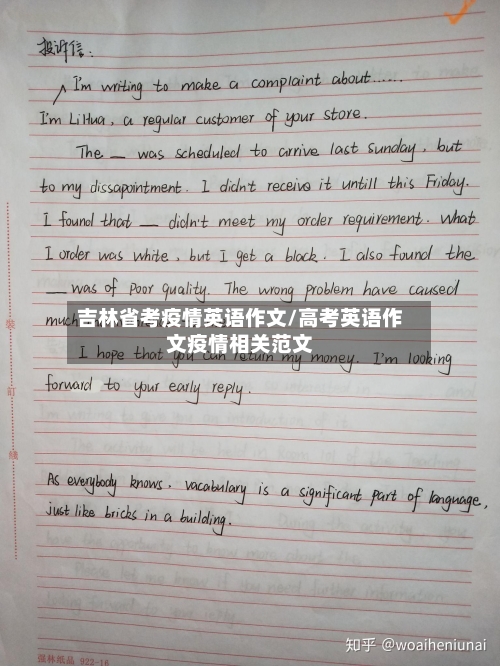 投诉信：
I'm writing to make a complaint about......
I'm LiHua, a regular customer of your store.
The __ was scheduled to arrive last Sunday, but
to my dissapointment. I didn't receive it untill this Friday.
I found that __ didn't meet my order requirement. What
I order was white, but I get a black. I also found the
__ was of poor quality. The wrong problem have caused
much
吉林省考疫情英语作文/高考英语作
文疫情相关范文
I hope that you can return my money. I'm looking
forward to your early reply.
As everybody knows, vacabulary is a significant part of language,
just like bricks in a building.
装
订
线
922-16
知乎 @woaiheniunai